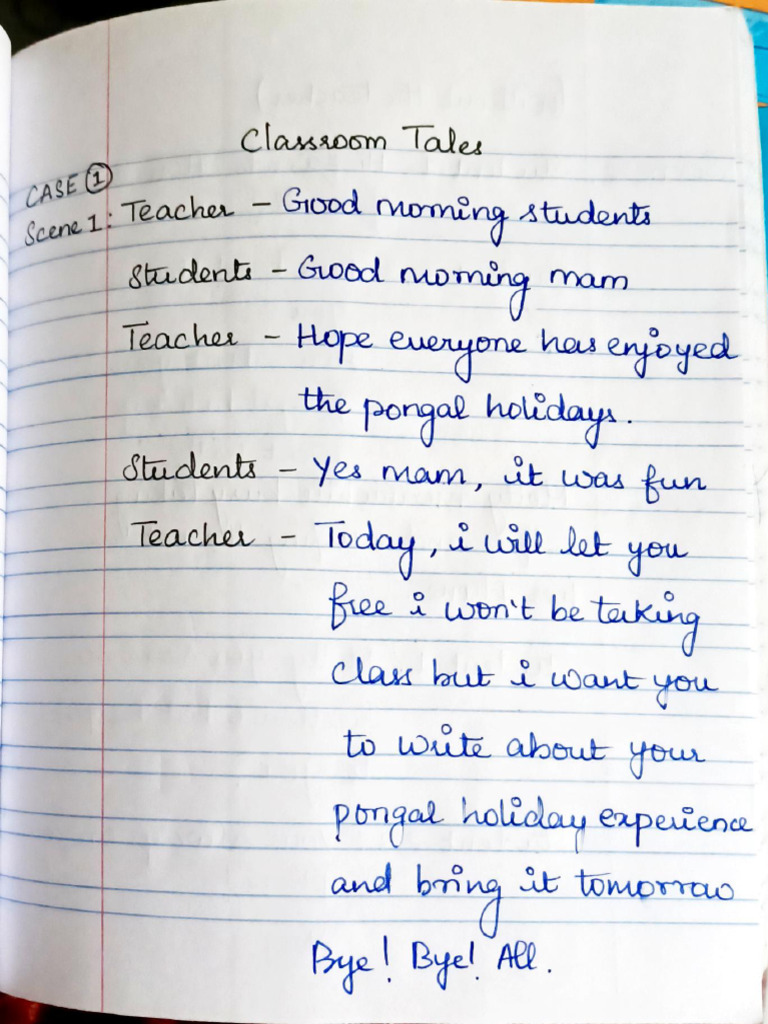 Classroom Tales
CASE ①
Scene 1: Teacher - Good morning students
Students - Good morning mam
Teacher - Hope everyone has enjoyed
the pongal holidays.
Students - Yes mam, it was fun
Teacher - Today, i will let you
free i won't be taking
class but i want you
to write about your
pongal holiday experience
and bring it tomorrow
Bye! Bye! All.